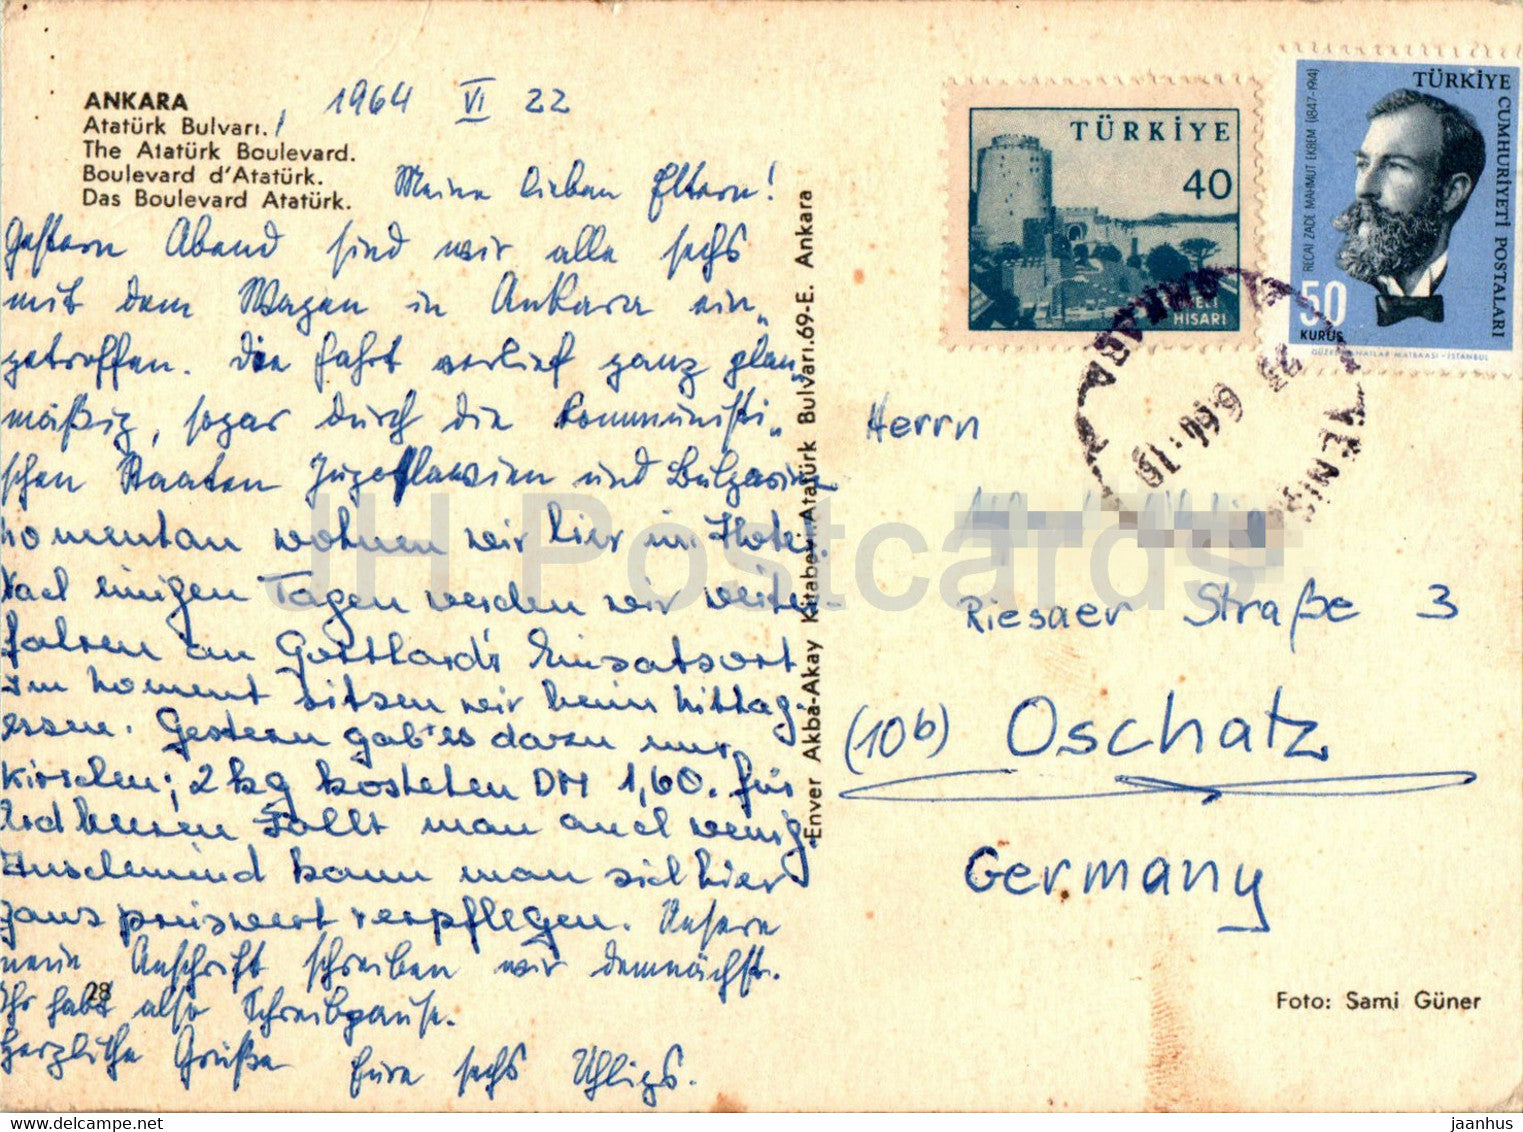 ANKARA
Atatürk Bulvarı.
The Atatürk Boulevard.
Boulevard d'Atatürk.
Das Boulevard Atatürk.
1964 VI 22
Meine lieben Eltern!
Gestern Abend sind wir alle sechs
mit dem Wagen in Ankara ein-
getroffen. Die Fahrt verlief ganz plan-
mäßig, sogar durch die kommunisti-
schen Staaten Jugoslawien und Bulgarien
Momentan wohnen wir hier im Hotel.
Nach einigen Tagen werden wir weiter-
fahren an Gotthard's Einsatzort
Im Moment sitzen wir beim Mittag-
essen. Gestern gab's dazu nur
Kirschen; 2 kg kosteten DM 1,60. für
Erdbeeren zahlt man auch wenig.
Anscheinend kann man sich hier
ganz preiswert verpflegen. Unsere
neue Anschrift schreiben wir demnächst.
Ihr habt also Schreibpause.
Herzliche Grüße Eure sechs Uhligs.
28
Enver Akba-Akay Kitabevi Atatürk Bulvarı.69-E. Ankara
TÜRKİYE
40
HISARI
TÜRKİYE
CUMHURİYETİ POSTALARI
RECAI ZADE MAHMUT EKREM (1847-1914)
50
KURUŞ
GÜZEL SANATLAR MATBAASI-İSTANBUL
ANKARA
23 6 64.-19
Herrn
Riesaer Straße 3
(10b) Oschatz
Germany
Foto: Sami Güner
JH Postcards
jaanhus @ delcampe.net